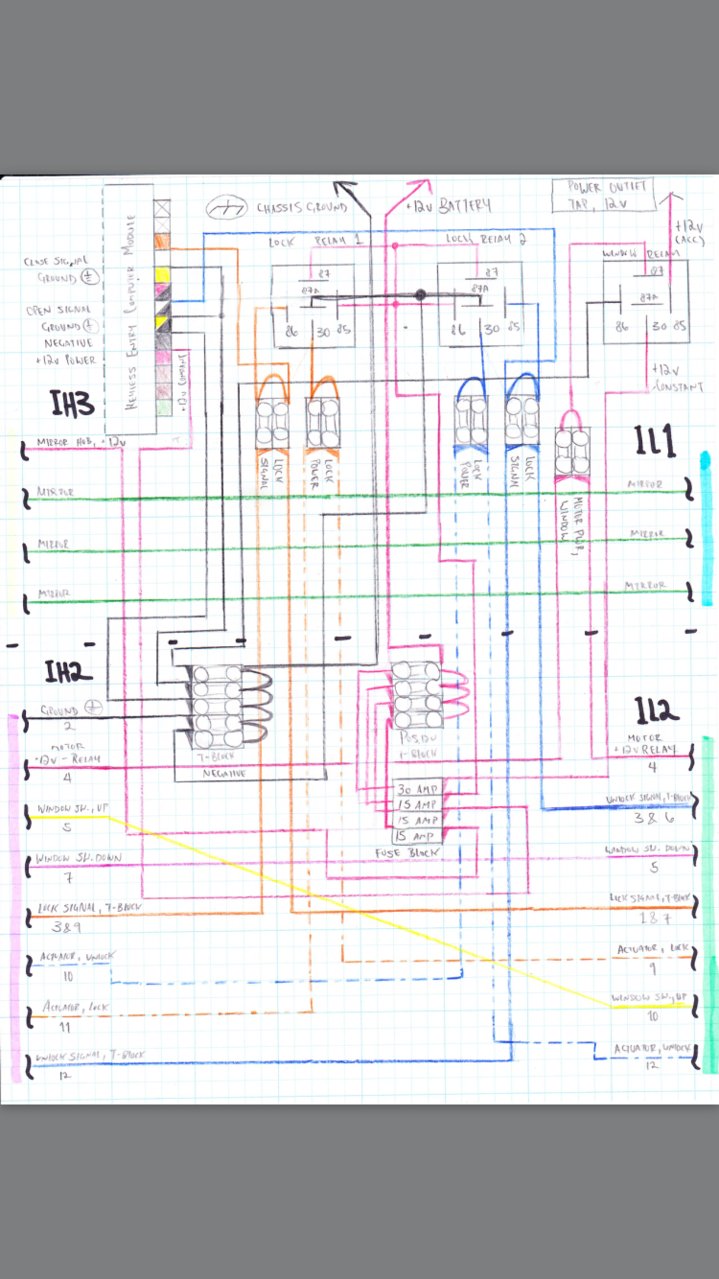 CHASSIS GROUND
+12V BATTERY
POWER OUTLET
TAP, 12V
+12V
(ACC)
KEYLESS ENTRY COMPUTER MODULE
CLOSE SIGNAL
GROUND
OPEN SIGNAL
GROUND
NEGATIVE
+12V POWER
+12V CONSTANT
LOCK RELAY 1
87
87A
86 30 85
LOCK RELAY 2
87
87A
86 30 85
WINDOW RELAY
87
87A
86 30 85
+12V
CONSTANT
IH3
IL1
LOCK
SIGNAL
LOCK
POWER
LOCK
POWER
LOCK
SIGNAL
WINDOW
MIRROR
MIRROR
MIRROR
MIRROR
MIRROR
MIRROR
IH2
IL2
GROUND
2
MOTOR
+12V - RELAY
4
WINDOW SW., UP
5
WINDOW SW. DOWN
7
LOCK SIGNAL, T-BLOCK
3&9
ACTUATOR, UNLOCK
10
ACTUATOR, LOCK
11
UNLOCK SIGNAL, T-BLOCK
12
T-BLOCK
NEGATIVE
T-BLOCK
30 AMP
15 AMP
15 AMP
15 AMP
FUSE BLOCK
MOTOR
+12V RELAY
4
UNLOCK SIGNAL, T-BLOCK
3&6
WINDOW SW. DOWN
5
LOCK SIGNAL, T-BLOCK
1&7
ACTUATOR, LOCK
9
WINDOW SW., UP
10
ACTUATOR, UNLOCK
12